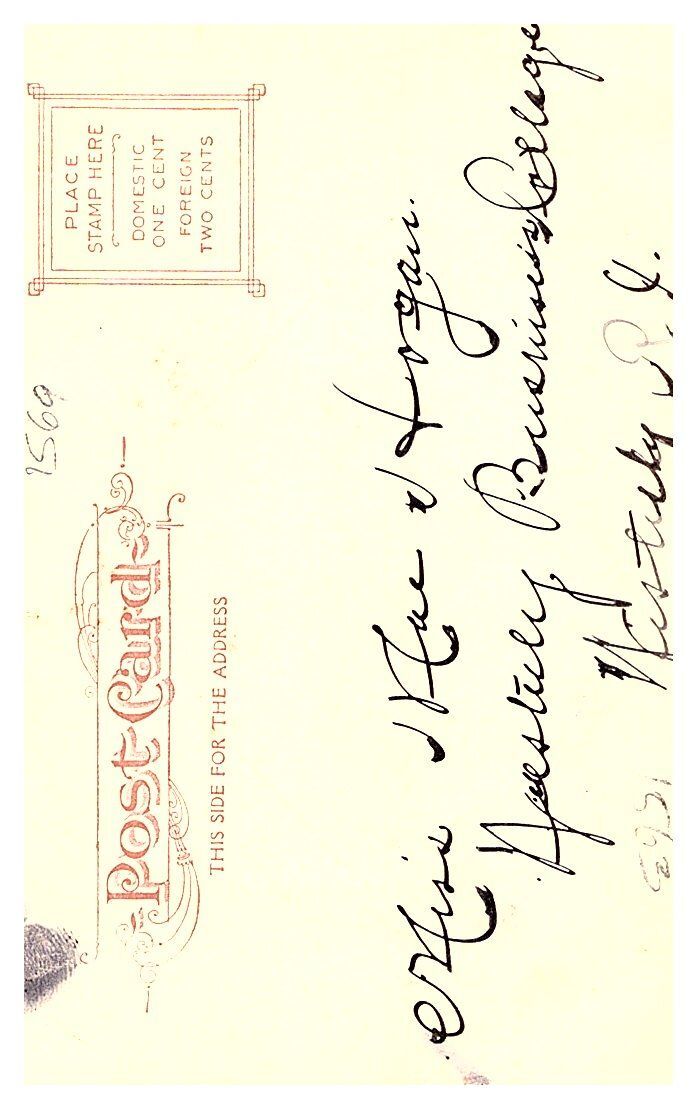 PLACE
STAMP HERE
DOMESTIC
ONE CENT
FOREIGN
TWO CENTS
1569
Post Card
THIS SIDE FOR THE ADDRESS
Miss Mae Horgan.
Westerly Business College
Westerly R. I.